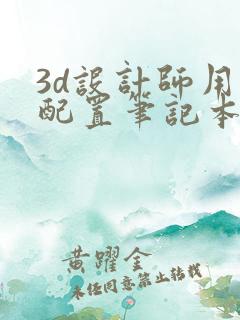 3d設計師用
配置筆記本
黃躍金
未經同意禁止轉載